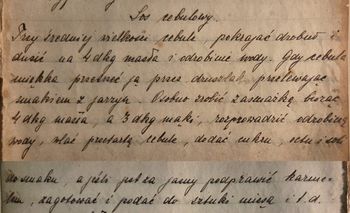 Sos cebulowy.
Trzy średniej wielkości cebule, pokrajać drobno i
dusić na 4 dkg masła i odrobinie wody. Gdy cebula
miękka przetrzeć ją przez druszlak, przelewając
smakiem z jarzyn. Osobno zrobić zasmażkę biorąc
4 dkg masła, a 3 dkg mąki, rozprowadzić odrobiną
wody, wlać przetartą cebulę, dodać cukru, octu i soli
do smaku, a jeśli potrza jasny podprawić karme-
lem, zagotować i podać do sztuki mięsa i t. d.